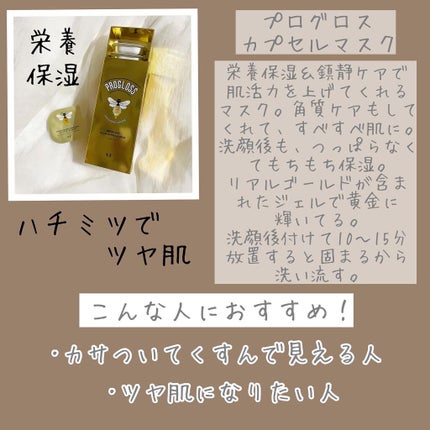 栄養
保湿
PROGLOSS
ハチミツで
ツヤ肌
プログロス
カプセルマスク
栄養保湿&鎮静ケアで
肌活力を上げてくれる
マスク。角質ケアもして
くれて、すべすべ肌に。
洗顔後も、つっぱらなく
てもちもち保湿。
リアルゴールドが含ま
れたジェルで黄金に
輝いてる。
洗顔後付けて10〜15分
放置すると固まるから
洗い流す。
こんな人におすすめ!
・カサついてくすんで見える人
・ツヤ肌になりたい人